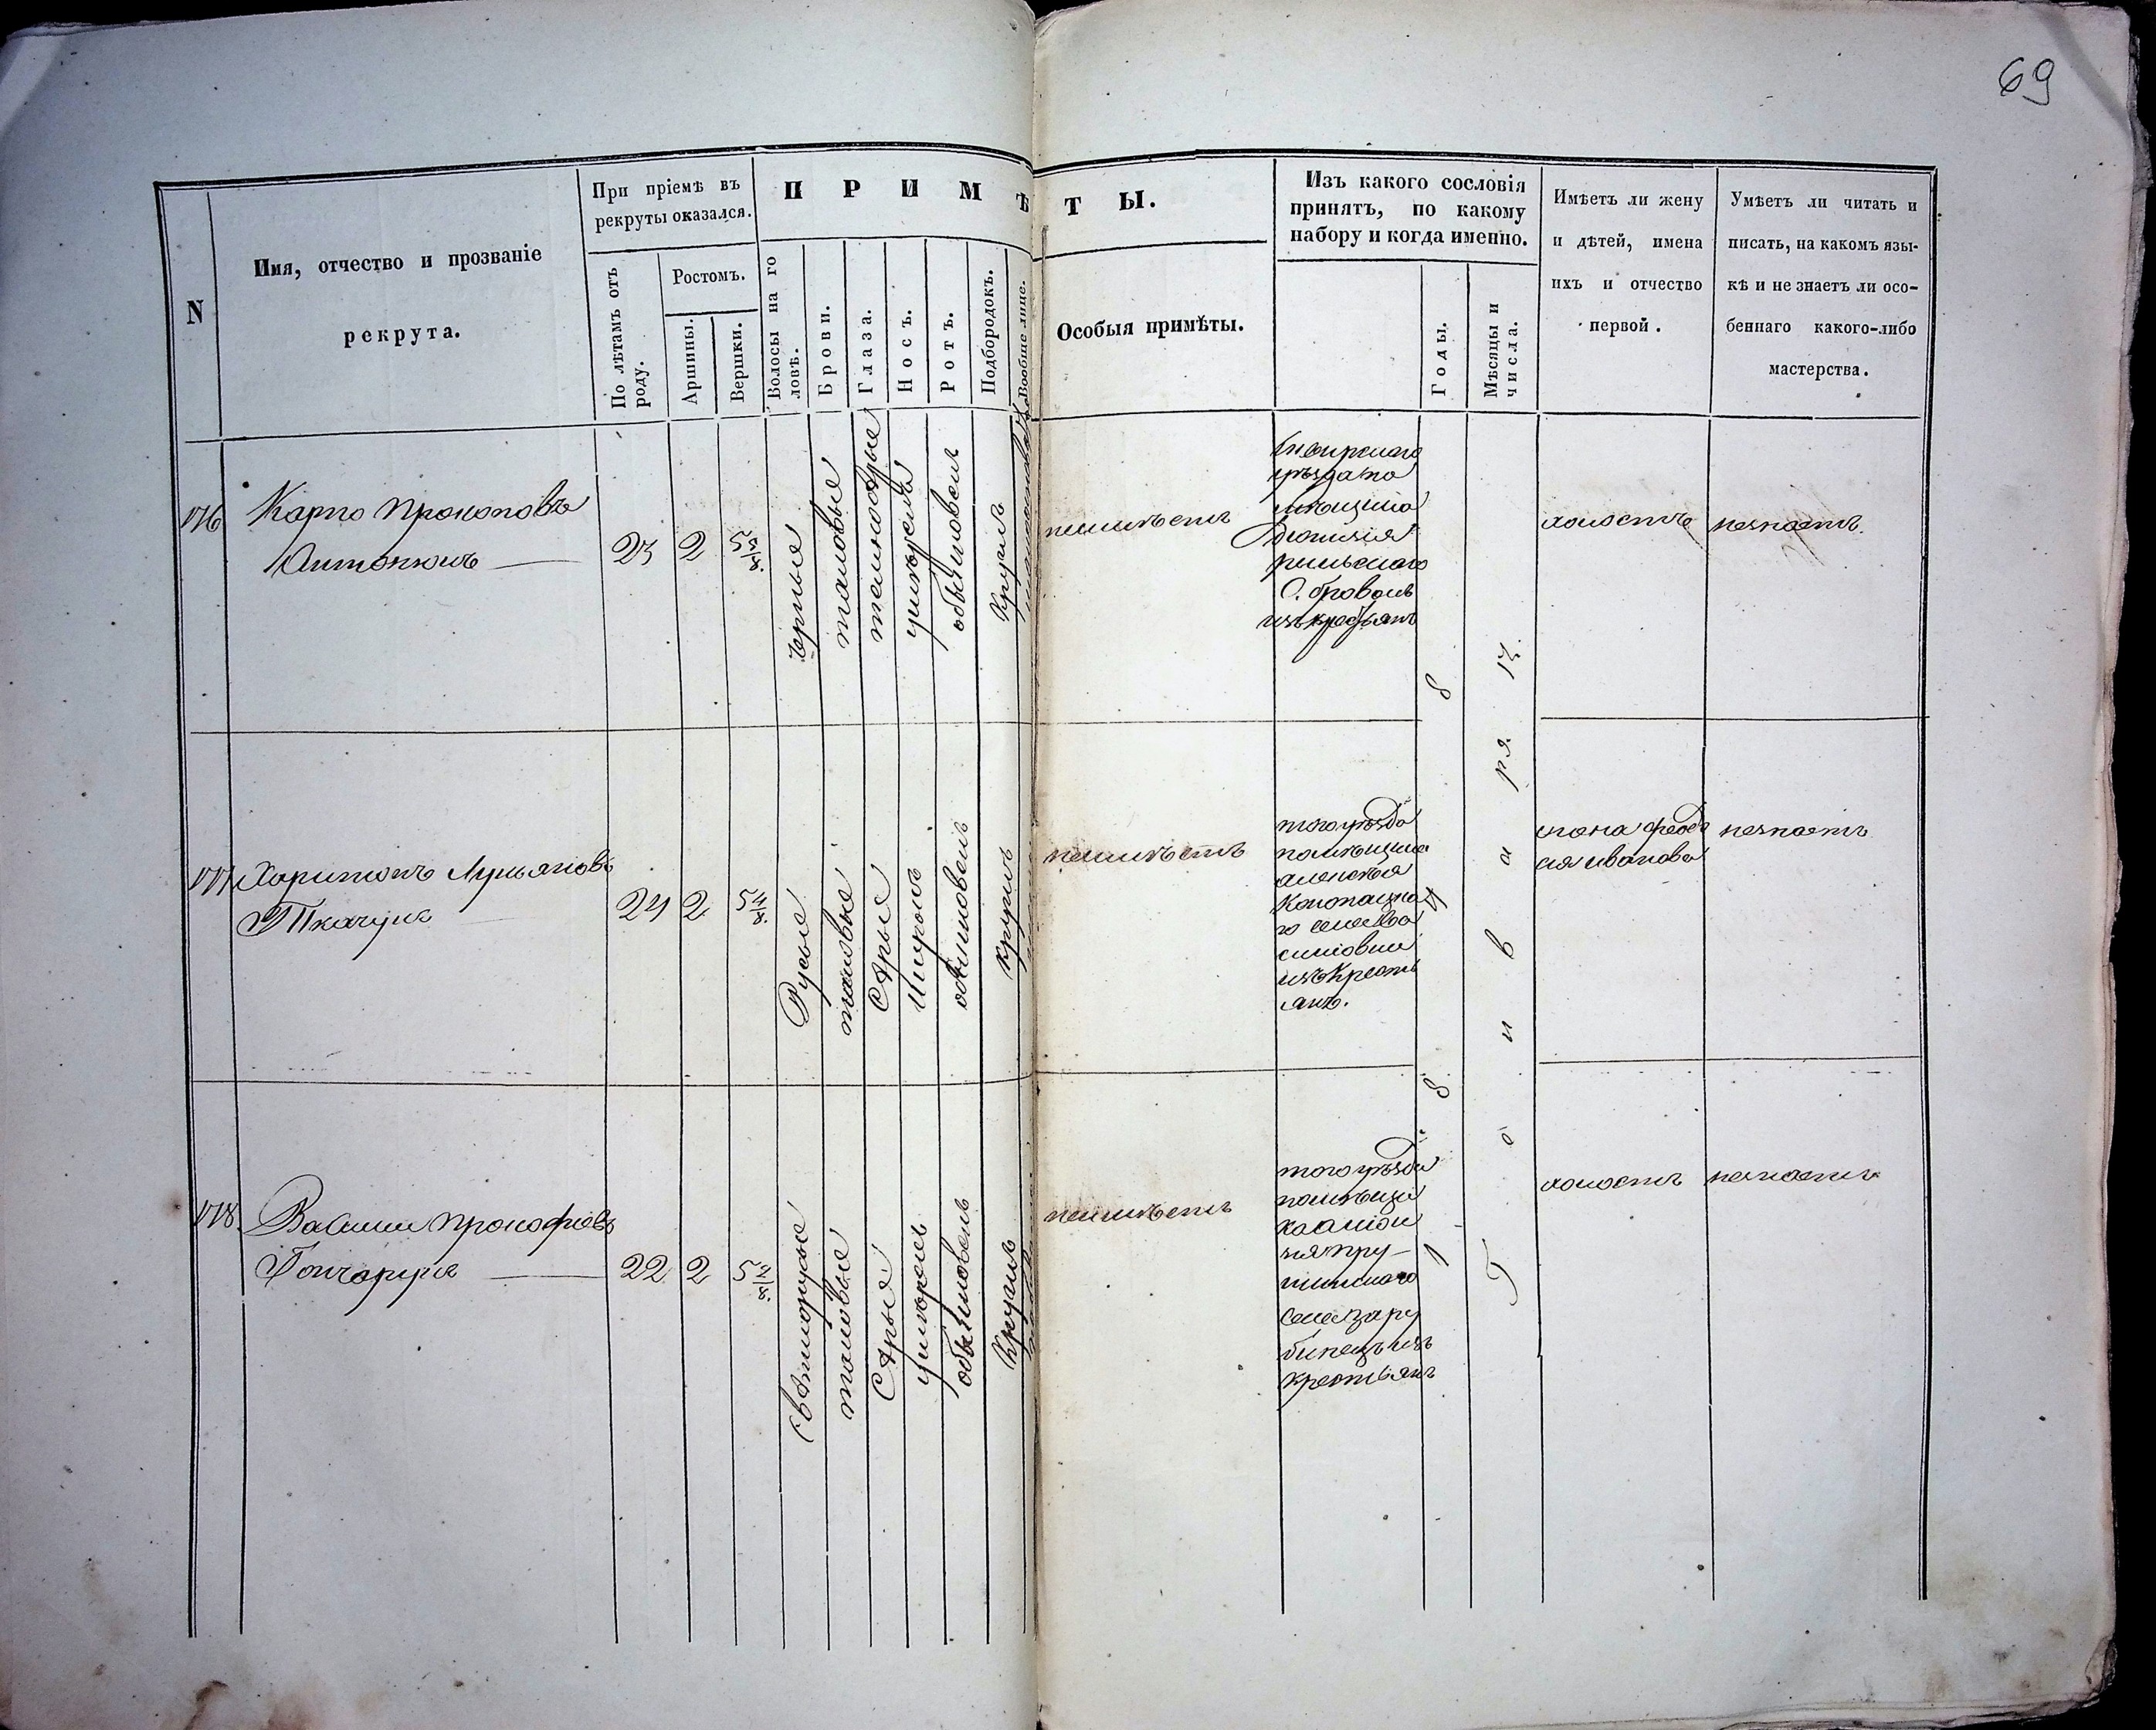 69
N
Имя, отчество и прозваніе
рекрута.
При пріемѣ въ
рекруты оказался.
По лѣтамъ отъ
роду.
Ростомъ.
Аршины.
Вершки.
ПРИМѢТЫ.
Волосы на го
ловѣ.
Брови.
Глаза.
Носъ.
Ротъ.
Подбородокъ.
Вообще лице.
Особыя примѣты.
Изъ какого сословія
принятъ, по какому
набору и когда именно.
Годы.
Мѣсяцы и
числа.
Имѣетъ ли жену
и дѣтей, имена
ихъ и отчество
первой.
Умѣетъ ли читать и
писать, на какомъ язы-
кѣ и не знаетъ ли осо-
беннаго какого-либо
мастерства.
176
Карпо Прокоповъ
Антонюкъ
23
2
5 5/8.
черные
таковые
темносѣрые
умѣренъ
обыкновенъ
Круглъ
неимѣетъ
уѣзда по
мѣщика
Діонисія
изъ крестьянъ
холостъ
незнаетъ.
177
Харитонъ Лукьяновъ
Ткачукъ
24
2
5 4/8.
Русые
таковые
Сѣрые
Широкъ
обыкновенъ
круглъ
неимѣетъ
того уѣзда
помѣщика
Алексѣя
изъ Кресть
янъ.
жена Феодо
сія Иванова
незнаетъ
178.
Василій Прокофіевъ
Гончарукъ
22
2
5 2/8.
свѣтлорусые
таковые
Сѣрые
умѣренъ
обыкновенъ
Круглъ
неимѣетъ
того уѣзда
помѣщи
ка
села Зару
бинецъ изъ
крестьянъ
1 8 4 8
Генваря 13.
холостъ
незнаетъ